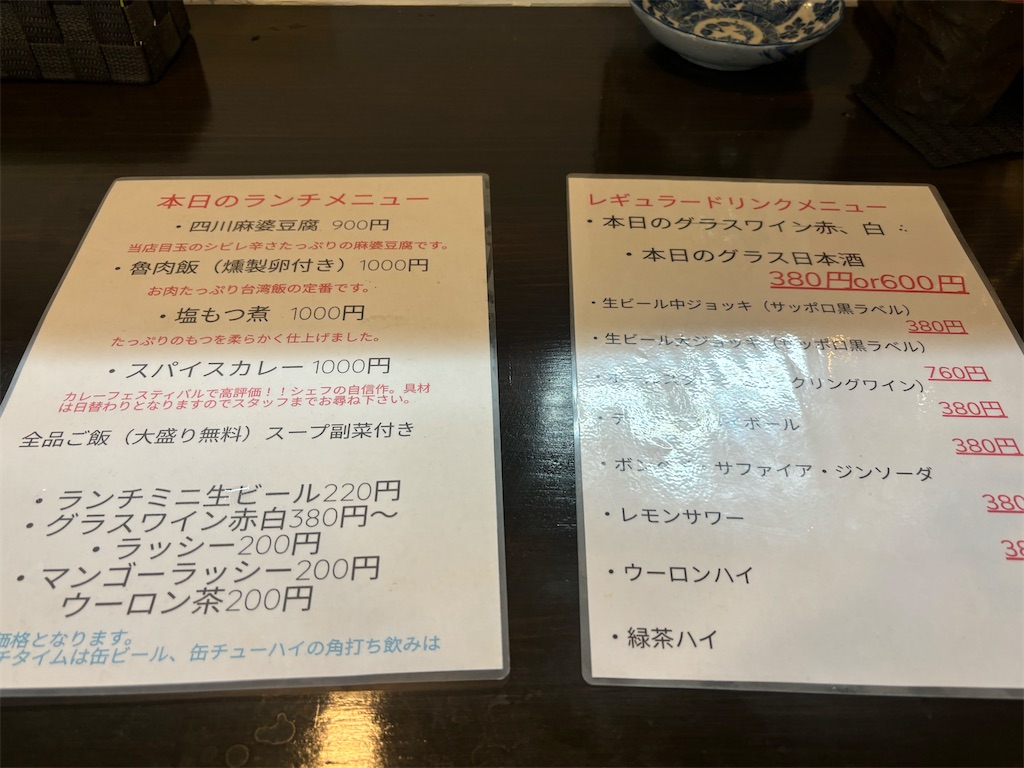 本日のランチメニュー
・四川麻婆豆腐 900円
当店目玉のシビレ辛さたっぷりの麻婆豆腐です。
・魯肉飯（燻製卵付き）1000円
お肉たっぷり台湾飯の定番です。
・塩もつ煮 1000円
たっぷりのもつを柔らかく仕上げました。
・スパイスカレー 1000円
カレーフェスティバルで高評価！！シェフの自信作。具材
は日替わりとなりますのでスタッフまでお尋ね下さい。
全品ご飯（大盛り無料）スープ副菜付き
・ランチミニ生ビール220円
・グラスワイン赤白380円～
・ラッシー200円
・マンゴーラッシー200円
ウーロン茶200円
価格となります。
チタイムは缶ビール、缶チューハイの角打ち飲みは
レギュラードリンクメニュー
・本日のグラスワイン赤、白
・本日のグラス日本酒
380円or600円
・生ビール中ジョッキ（サッポロ黒ラベル）
380円
・生ビール大ジョッキ（サッポロ黒ラベル）
760円
クリングワイン）
380円
ボール
380円
・ボン サファイア・ジンソーダ
380
・レモンサワー
38
・ウーロンハイ
・緑茶ハイ